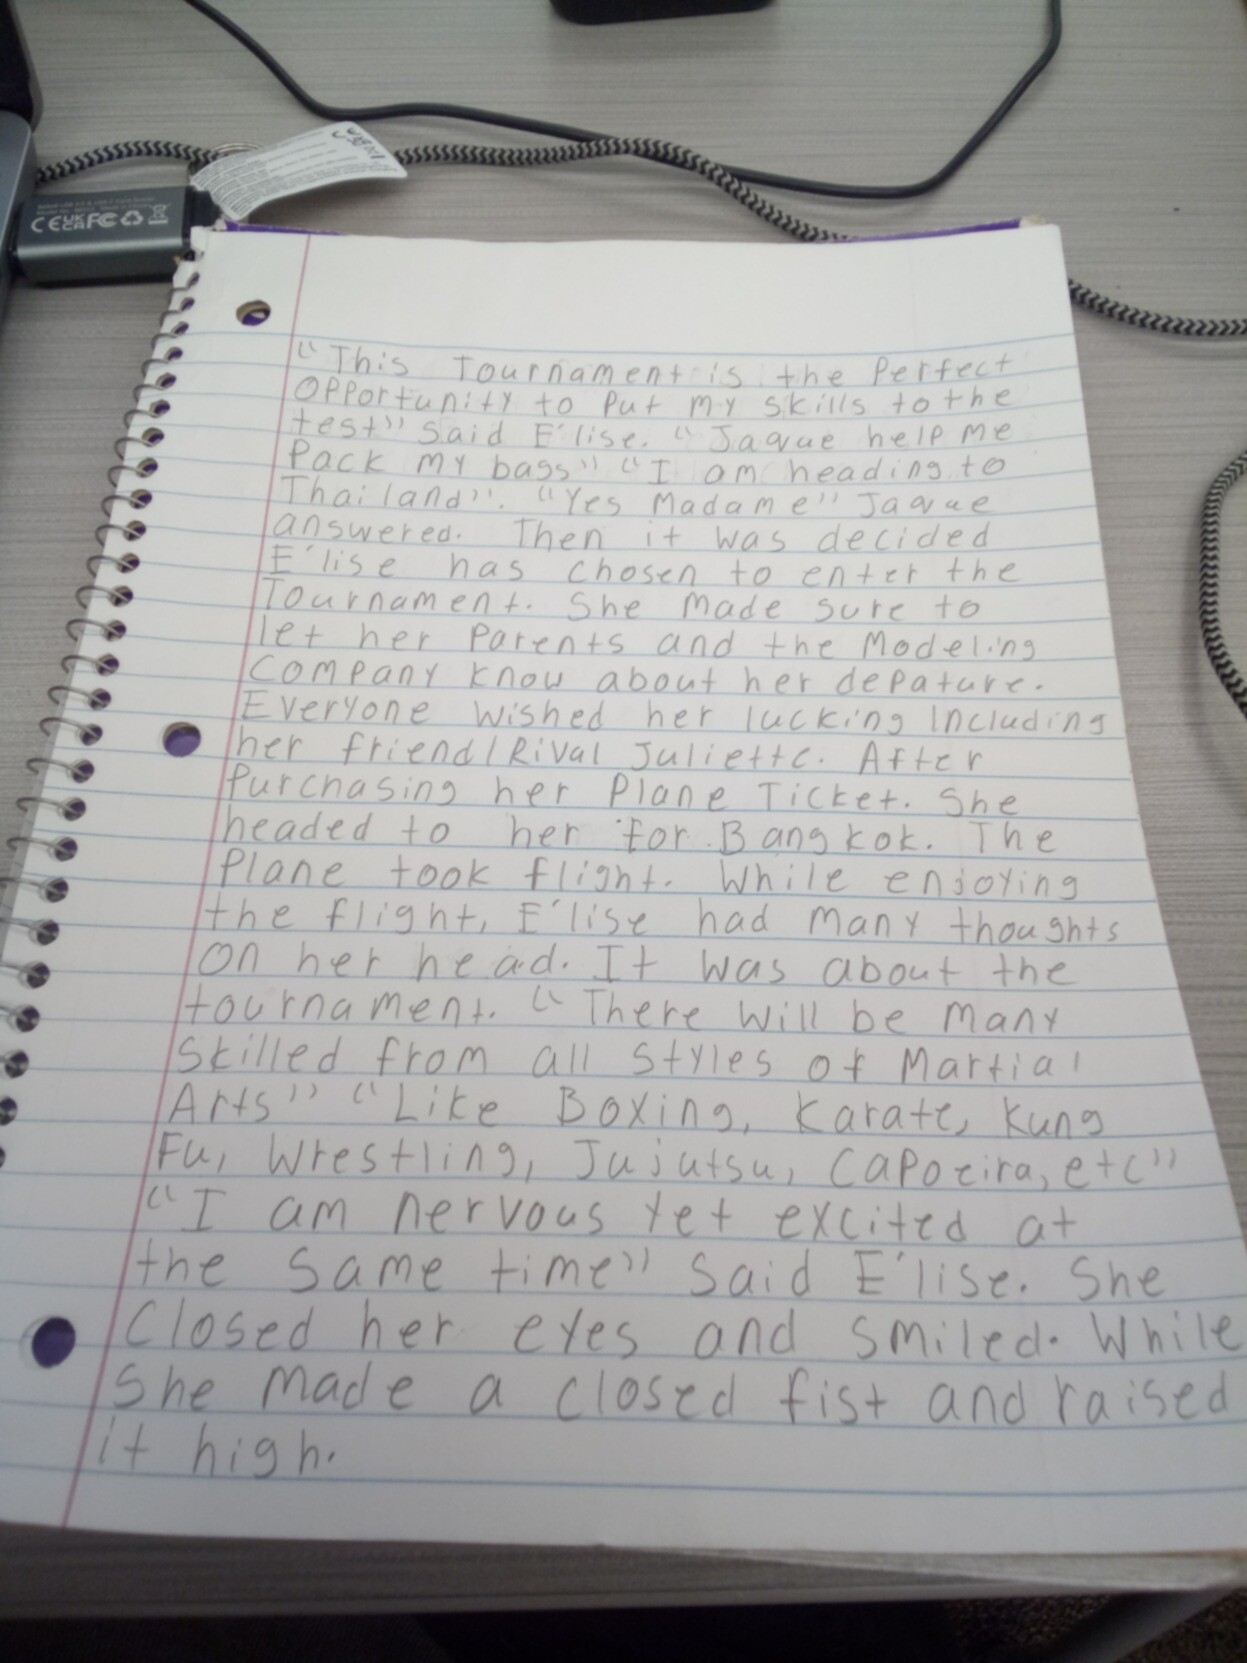 "This Tournament is the Perfect
Opportunity to Put my skills to the
test" said E'lise. "Jaque help me
Pack my bags" "I am heading to
Thailand". "Yes Madame" Jaque
answered. Then it was decided
E'lise has chosen to enter the
Tournament. She made sure to
let her Parents and the Modeling
Company know about her depature.
Everyone wished her lucking Including
her friend/Rival Juliette. After
Purchasing her Plane Ticket. She
headed to her for Bangkok. The
Plane took flight. While enjoying
the flight, E'lise had many thoughts
on her head. It was about the
tournament. "There will be many
skilled from all styles of Martial
Arts" "Like Boxing, Karate, Kung
Fu, Wrestling, Jujutsu, Capoeira, etc"
"I am nervous yet excited at
the same time" said E'lise. She
closed her eyes and smiled. While
she made a closed fist and raised
it high.